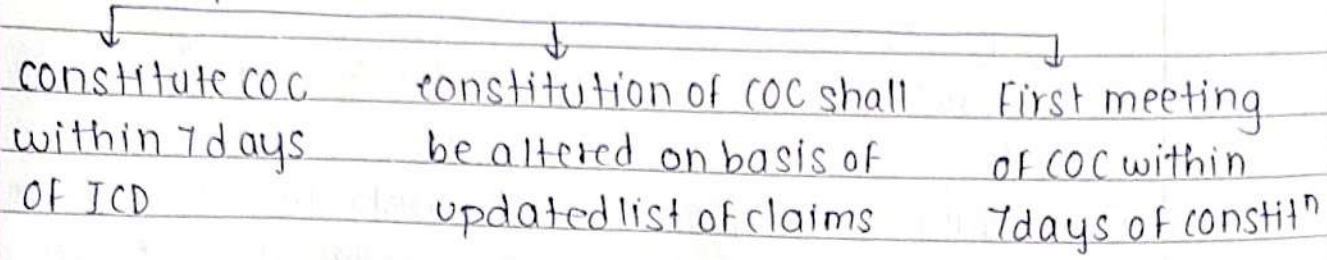 constitute COC
within 7days
OF ICD
constitution of COC shall
be altered on basis of
updated list of claims
First meeting
of COC within
7days of constitⁿ